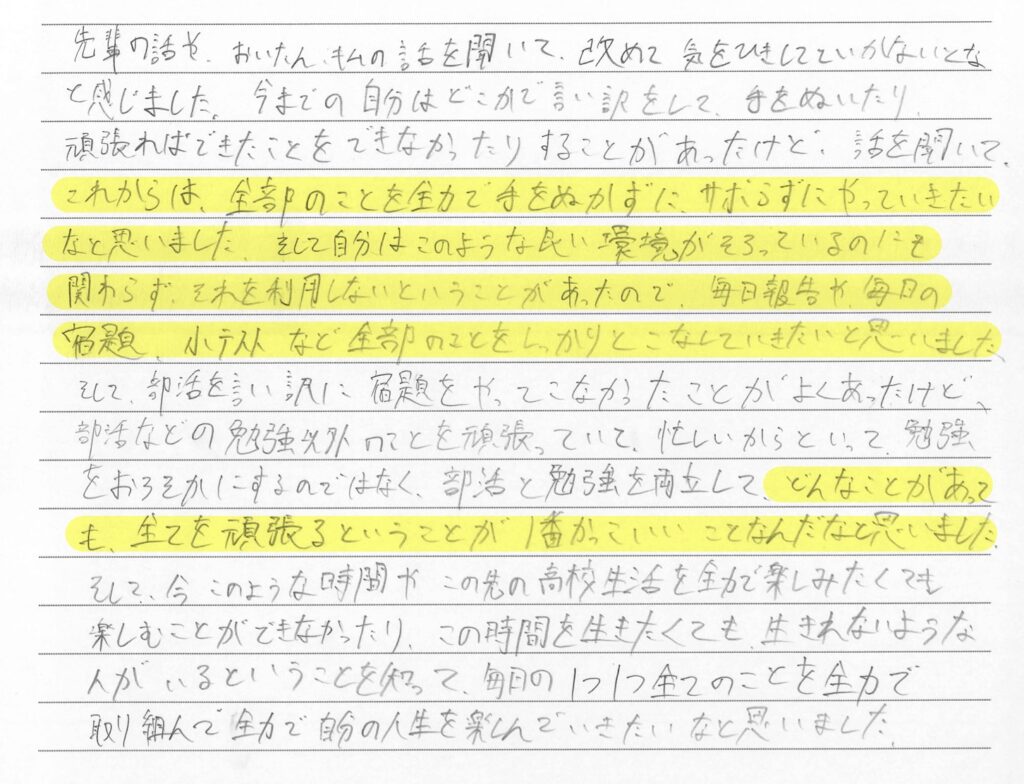 先輩の話や、おいたん、キムの話を聞いて、改めて気をひきしてていかないとな
と感じました。今までの自分はどこかで言い訳をして、手をぬいたり
頑張ればできたことをできなかったりすることがあったけど、話を聞いて、
これからは、全部のことを全力で手をぬかずに、サボらずにやっていきたい
なと思いました。そして自分はこのような良い環境がそろっているのにも
関わらず、それを利用しないということがあったので、毎日報告や、毎日の
宿題、小テストなど全部のことをしっかりとこなしていきたいと思いました。
そして、部活を言い訳に宿題をやってこなかったことがよくあったけど、
部活などの勉強以外のことを頑張っていて、忙しいからといって、勉強
をおろそかにするのではなく、部活と勉強を両立して、どんなことがあって
も、全てを頑張るということが1番かっこいいことなんだなと思いました。
そして、今このような時間やこの先の高校生活を全力で楽しみたくても
楽しむことができなかったり、この時間を生きたくても、生きれないような
人がいるということを知って、毎日の1つ1つ全てのことを全力で
取り組んで全力で自分の人生を楽しんでいきたいなと思いました。